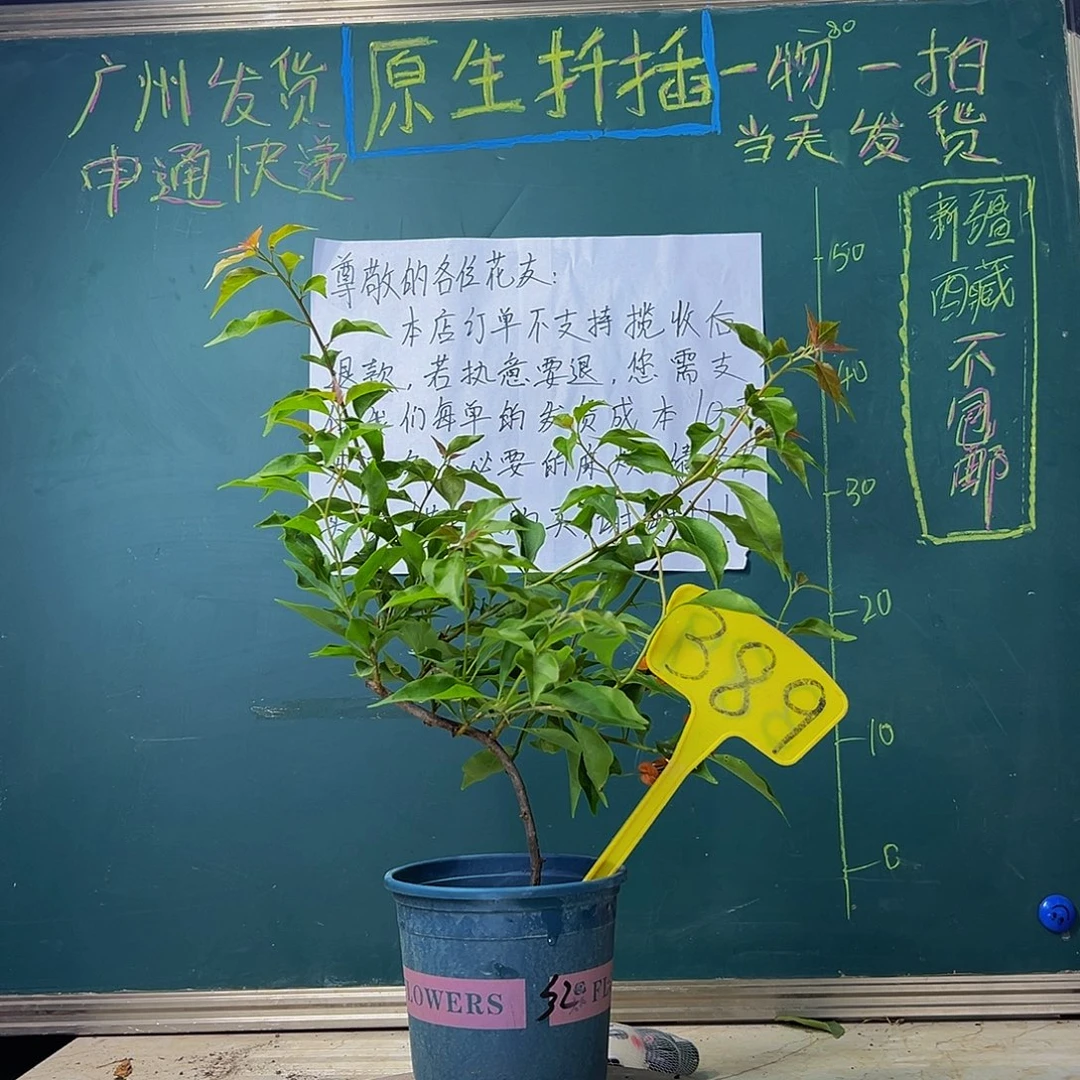 广州发货
原生扦插
一物一拍
80
申通快递
当天发货
新疆
西藏
不包邮
尊敬的各位花友:
本店订单不支持揽收后
退款,若执意要退,您需支
们每单的发货成本10
必要的麻烦
50
40
30
20
10
0
B89
LOWERS
红
FL